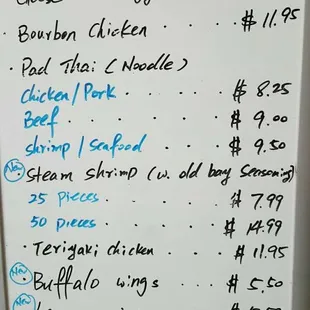 $ 11.95
· Bourbon Chicken
· Pad Thai ( Noodle )
Chicken / Pork . . . . $ 8.25
Beef . . . . . $ 9.00
shrimp / Seafood . . . . $ 9.50
New · Steam shrimp (w. old bay seasoning)
25 pieces . . . . $ 7.99
50 pieces . . . . $ 14.99
· Teriyaki chicken . . . $ 11.95
New · Buffalo wings . . . $ 5.50
New